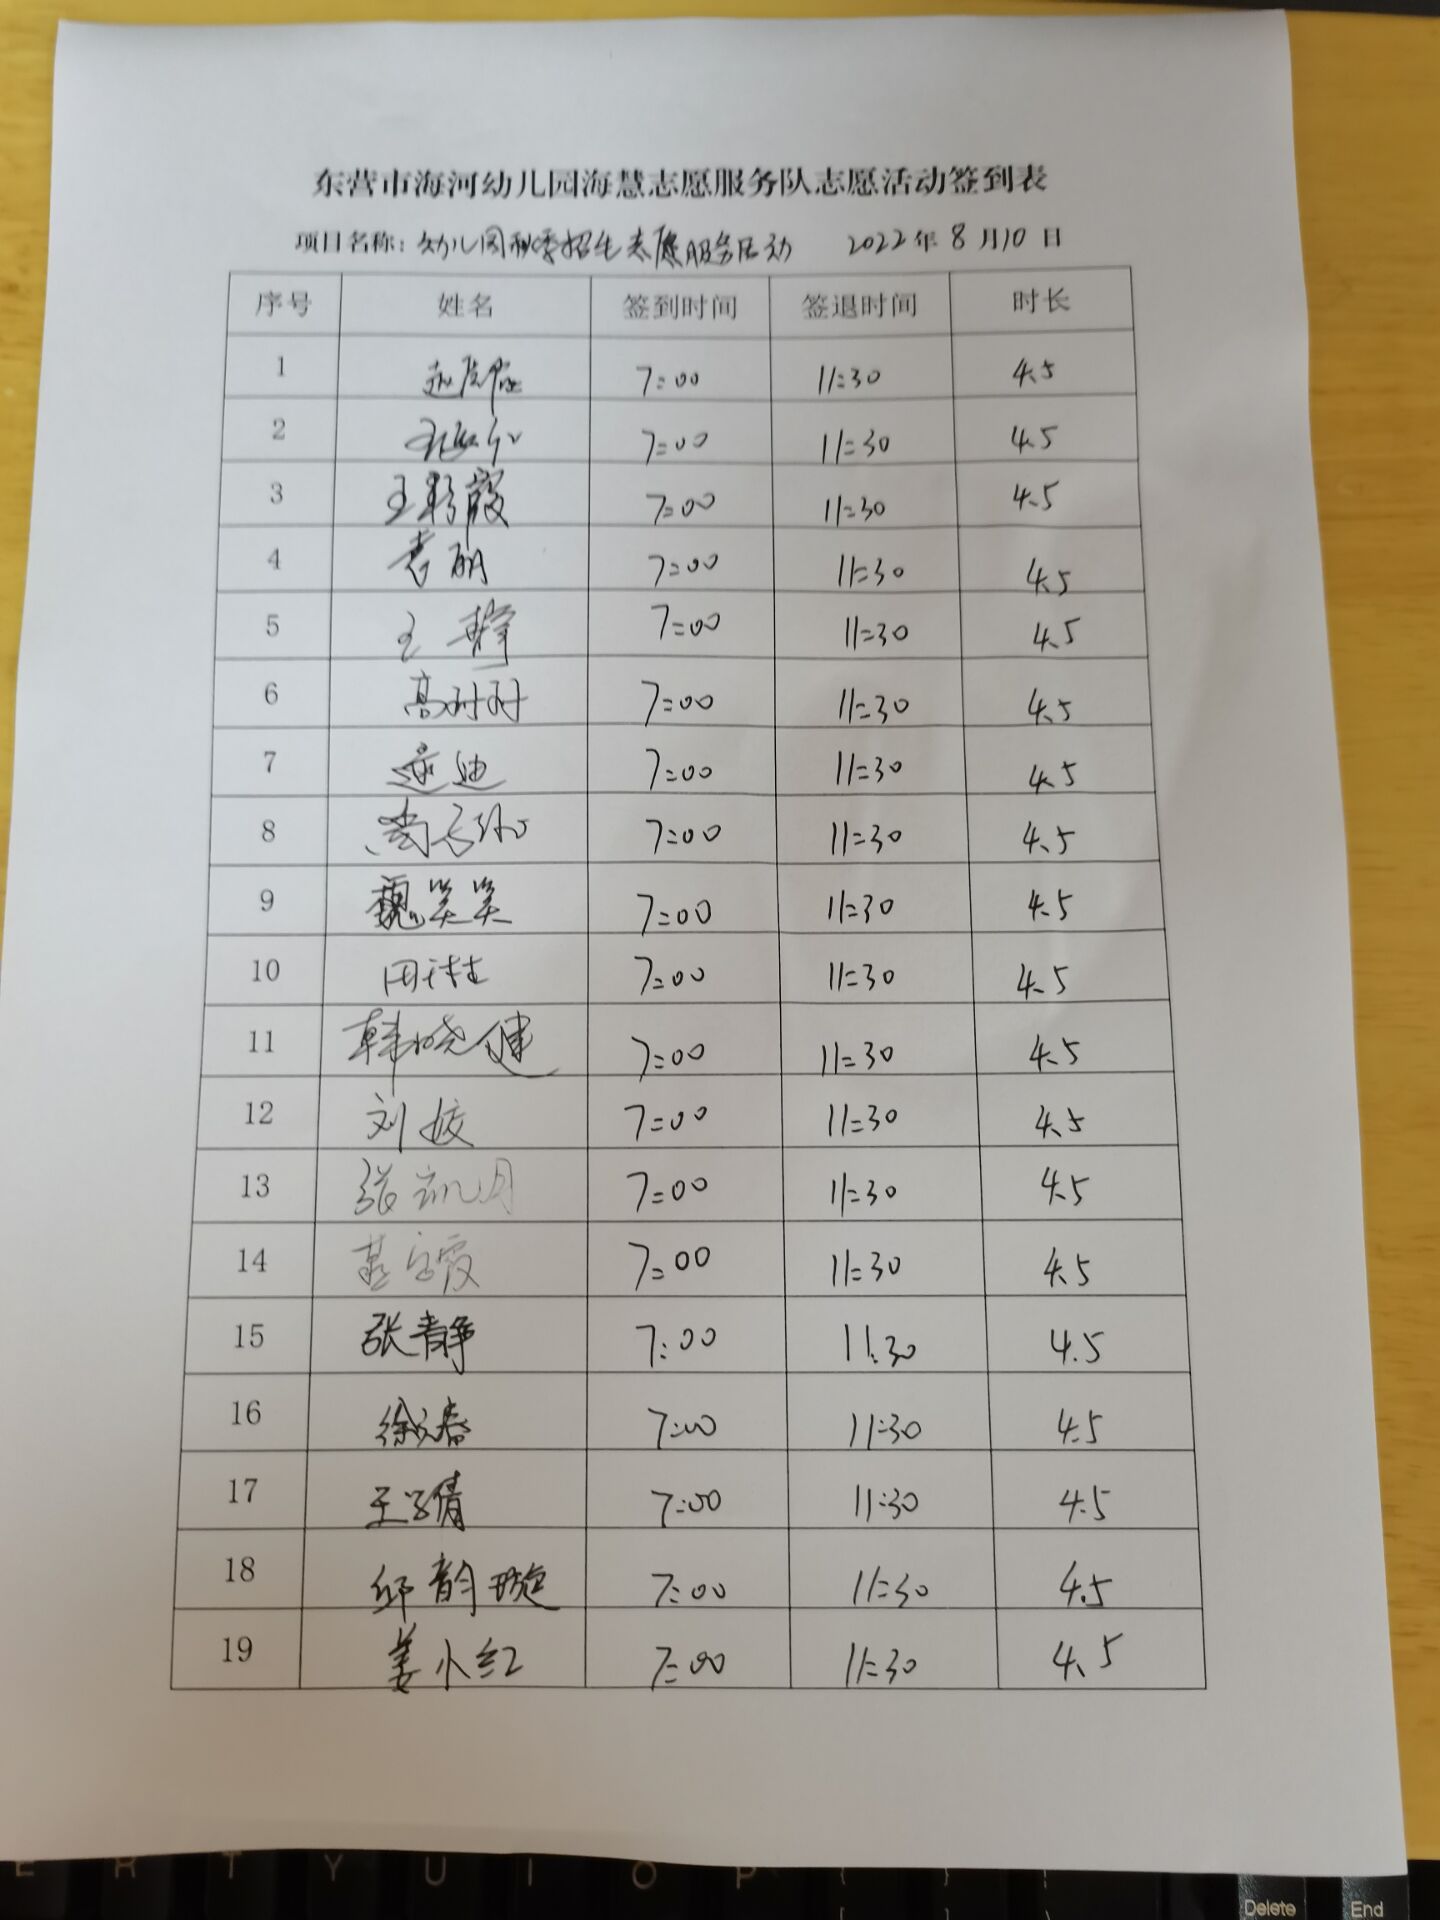 东营市海河幼儿园海慧志愿服务队志愿活动签到表
项目名称：幼儿园秋季招生志愿服务活动 2022年8月10日
序号 姓名 签到时间 签退时间 时长
1 7:00 11:30 4.5
2 7:00 11:30 4.5
3 王彩霞 7:00 11:30 4.5
4 袁丽 7:00 11:30 4.5
5 王静 7:00 11:30 4.5
6 高对对 7:00 11:30 4.5
7 7:00 11:30 4.5
8 7:00 11:30 4.5
9 魏笑笑 7:00 11:30 4.5
10 7:00 11:30 4.5
11 韩晓健 7:00 11:30 4.5
12 刘姣 7:00 11:30 4.5
13 张凯月 7:00 11:30 4.5
14 7:00 11:30 4.5
15 张静 7:00 11:30 4.5
16 7:00 11:30 4.5
17 7:00 11:30 4.5
18 邱韵璇 7:00 11:30 4.5
19 姜小红 7:00 11:30 4.5
E R T Y U I O P
Delete End